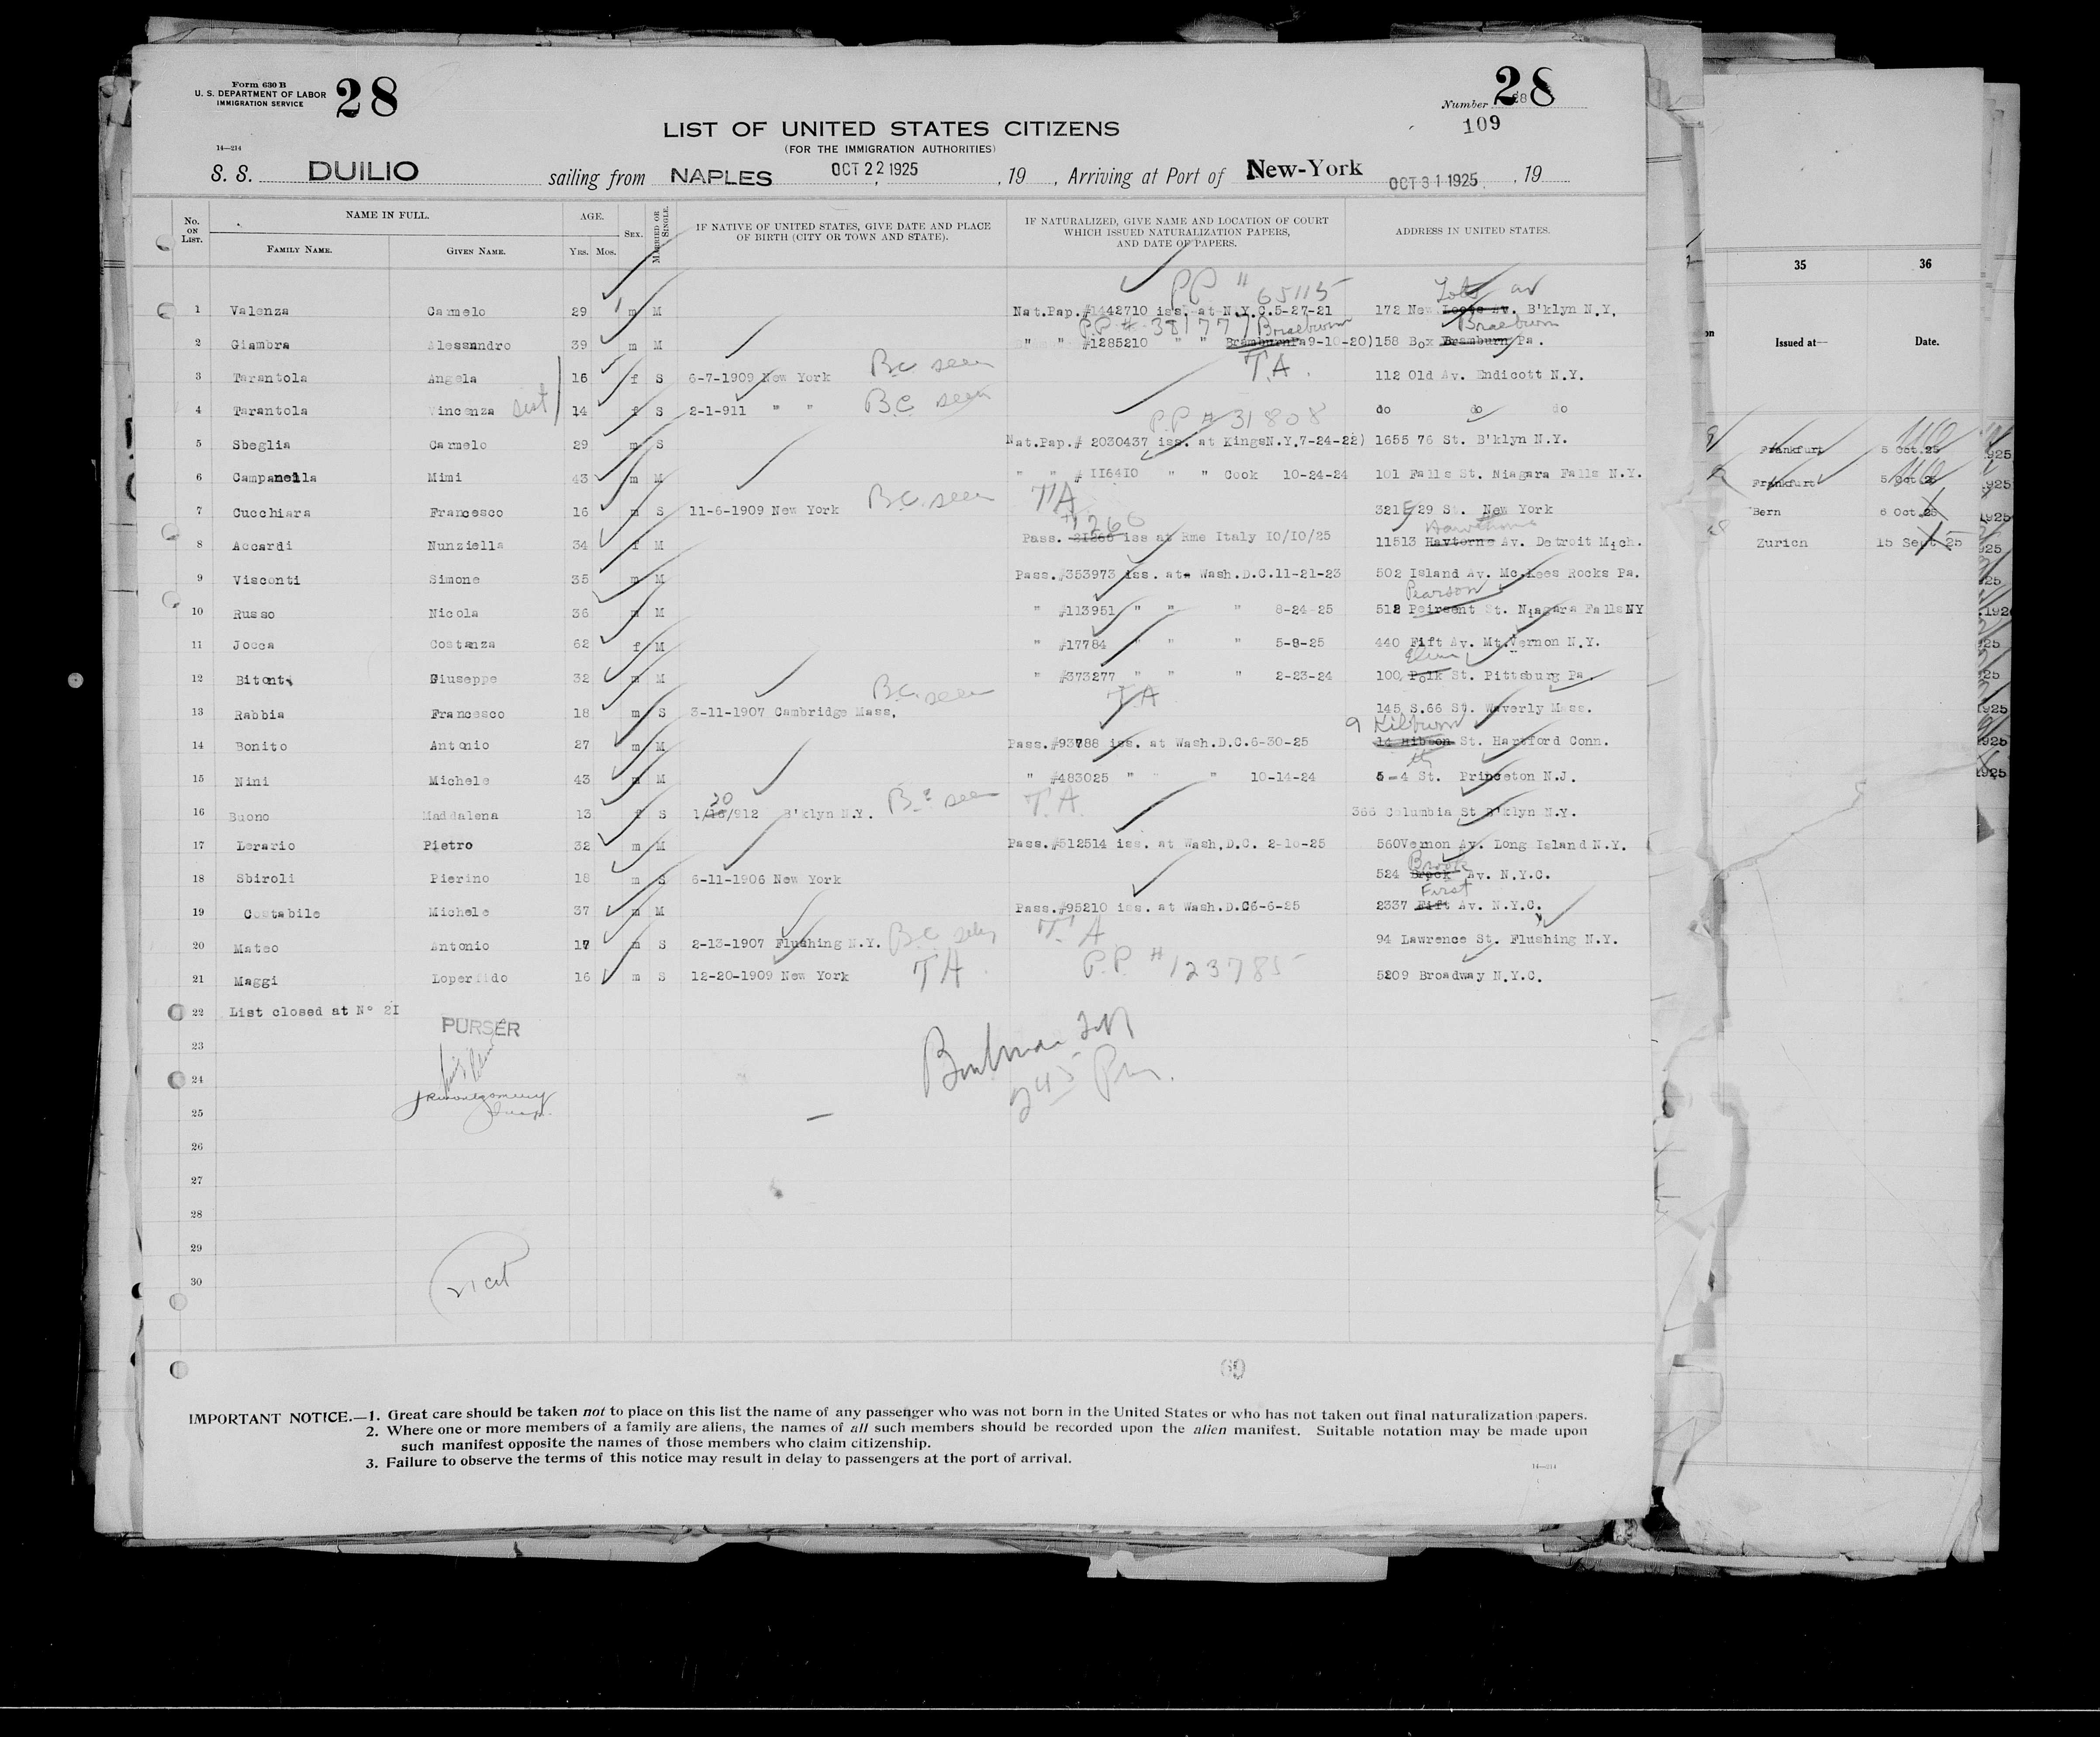 Form 630 B
U. S. DEPARTMENT OF LABOR
IMMIGRATION SERVICE
28
Number 28
109
LIST OF UNITED STATES CITIZENS
(FOR THE IMMIGRATION AUTHORITIES)
14—214
S. S. DUILIO sailing from NAPLES OCT 22 1925, 19 , Arriving at Port of New-York OCT 31 1925, 19
No. ON LIST. NAME IN FULL. FAMILY NAME. GIVEN NAME. AGE. YRS. MOS. SEX. MARRIED OR SINGLE. IF NATIVE OF UNITED STATES, GIVE DATE AND PLACE OF BIRTH (CITY OR TOWN AND STATE). IF NATURALIZED, GIVE NAME AND LOCATION OF COURT WHICH ISSUED NATURALIZATION PAPERS, AND DATE OF PAPERS. ADDRESS IN UNITED STATES.
PP # 65115 Lots av
1 Valenza Carmelo 29 m M Nat.Pap.#1442710 iss. at N.Y.C.5-27-21 172 New Lots Av. B'klyn N.Y.
P.P # 381777 Braeburn Braeburn
2 Giambra Alessandro 39 m M " " #1285210 " " Bramburn Pa 9-10-20) 158 Box Bramburn Pa.
3 Tarantola Angela 16 f S 6-7-1909 New York B.C. seen T.A. 112 Old Av. Endicott N.Y.
4 Tarantola Vincenza sist 14 f S 2-1-911 " " B.C. seen do do do
P.P # 31808
5 Sbeglia Carmelo 29 m S Nat.Pap.# 2030437 iss. at KingsN.Y.7-24-22) 1655 76 St. B'klyn N.Y.
6 Campanella Mimi 43 m M " " # II64I0 " " Cook 10-24-24 101 Falls St. Niagara Falls N.Y.
7 Cucchiara Francesco 16 m S 11-6-1909 New York B.C. seen TA 321 E 29 St. New York
1260 Hawthorne
8 Accardi Nunziella 34 f M Pass. 21266 iss at Rme Italy IO/IO/25 11513 Havtorne Av. Detroit Mich.
9 Visconti Simone 35 m M Pass.#353973 iss. at Wash.D.C.11-21-23 502 Island Av. Mc.Kees Rocks Pa.
Pearson
10 Russo Nicola 36 m M " #113951 " " " 8-24-25 512 Peirsent St. Niagara FallsNY
11 Jocca Costanza 62 f M " #17784 " " " 5-8-25 440 Fift Av. Mt.Vernon N.Y.
12 Bitonti Giuseppe 32 m M " #373277 " " " 2-23-24 100, Polk St. Pittsburg Pa.
13 Rabbia Francesco 18 m S 3-11-1907 Cambridge Mass. B.C. seen T.A 145 S.66 St. Waverly Mass.
9 Kilburn
14 Bonito Antonio 27 m M Pass.#93788 iss. at Wash.D.C.6-30-25 14 Hibson St. Hartford Conn.
th
15 Nini Michele 43 m M " #483025 " " " 10-14-24 5-4 St. Princeton N.J.
20
16 Buono Maddalena 13 f S 1/18/912 B'klyn N.Y. B.C seen T.A. 366 Columbia St B'klyn N.Y.
17 Lerario Pietro 32 m M Pass.#512514 iss. at Wash.D.C. 2-10-25 560Vernon Av. Long Island N.Y.
Brook
18 Sbiroli Pierino 18 m S 6-11-1906 New York 524 Brock Av. N.Y.C.
First
19 Costabile Michele 37 m M Pass.#95210 iss. at Wash.D.C6-6-25 2337 Fift Av. N.Y.C.
20 Mateo Antonio 17 m S 2-13-1907 Flushing N.Y. B.C. T.A 94 Lawrence St. Flushing N.Y.
21 Maggi Loperfido 16 m S 12-20-1909 New York TA. P.P. # 123785 5209 Broadway N.Y.C.
22 List closed at N° 2I
PURSER
23
24
25 JR Montgomery Insp.
245 Pm.
26
27
28
29
30
21 cit
IMPORTANT NOTICE.—1. Great care should be taken not to place on this list the name of any passenger who was not born in the United States or who has not taken out final naturalization papers.
2. Where one or more members of a family are aliens, the names of all such members should be recorded upon the alien manifest. Suitable notation may be made upon
such manifest opposite the names of those members who claim citizenship.
3. Failure to observe the terms of this notice may result in delay to passengers at the port of arrival.
14—214
35 36
Issued at— Date.
Frankfurt 5 Oct.25
Frankfurt 5 Oct 25
Bern 6 Oct.25
Zurich 15 Sept 25